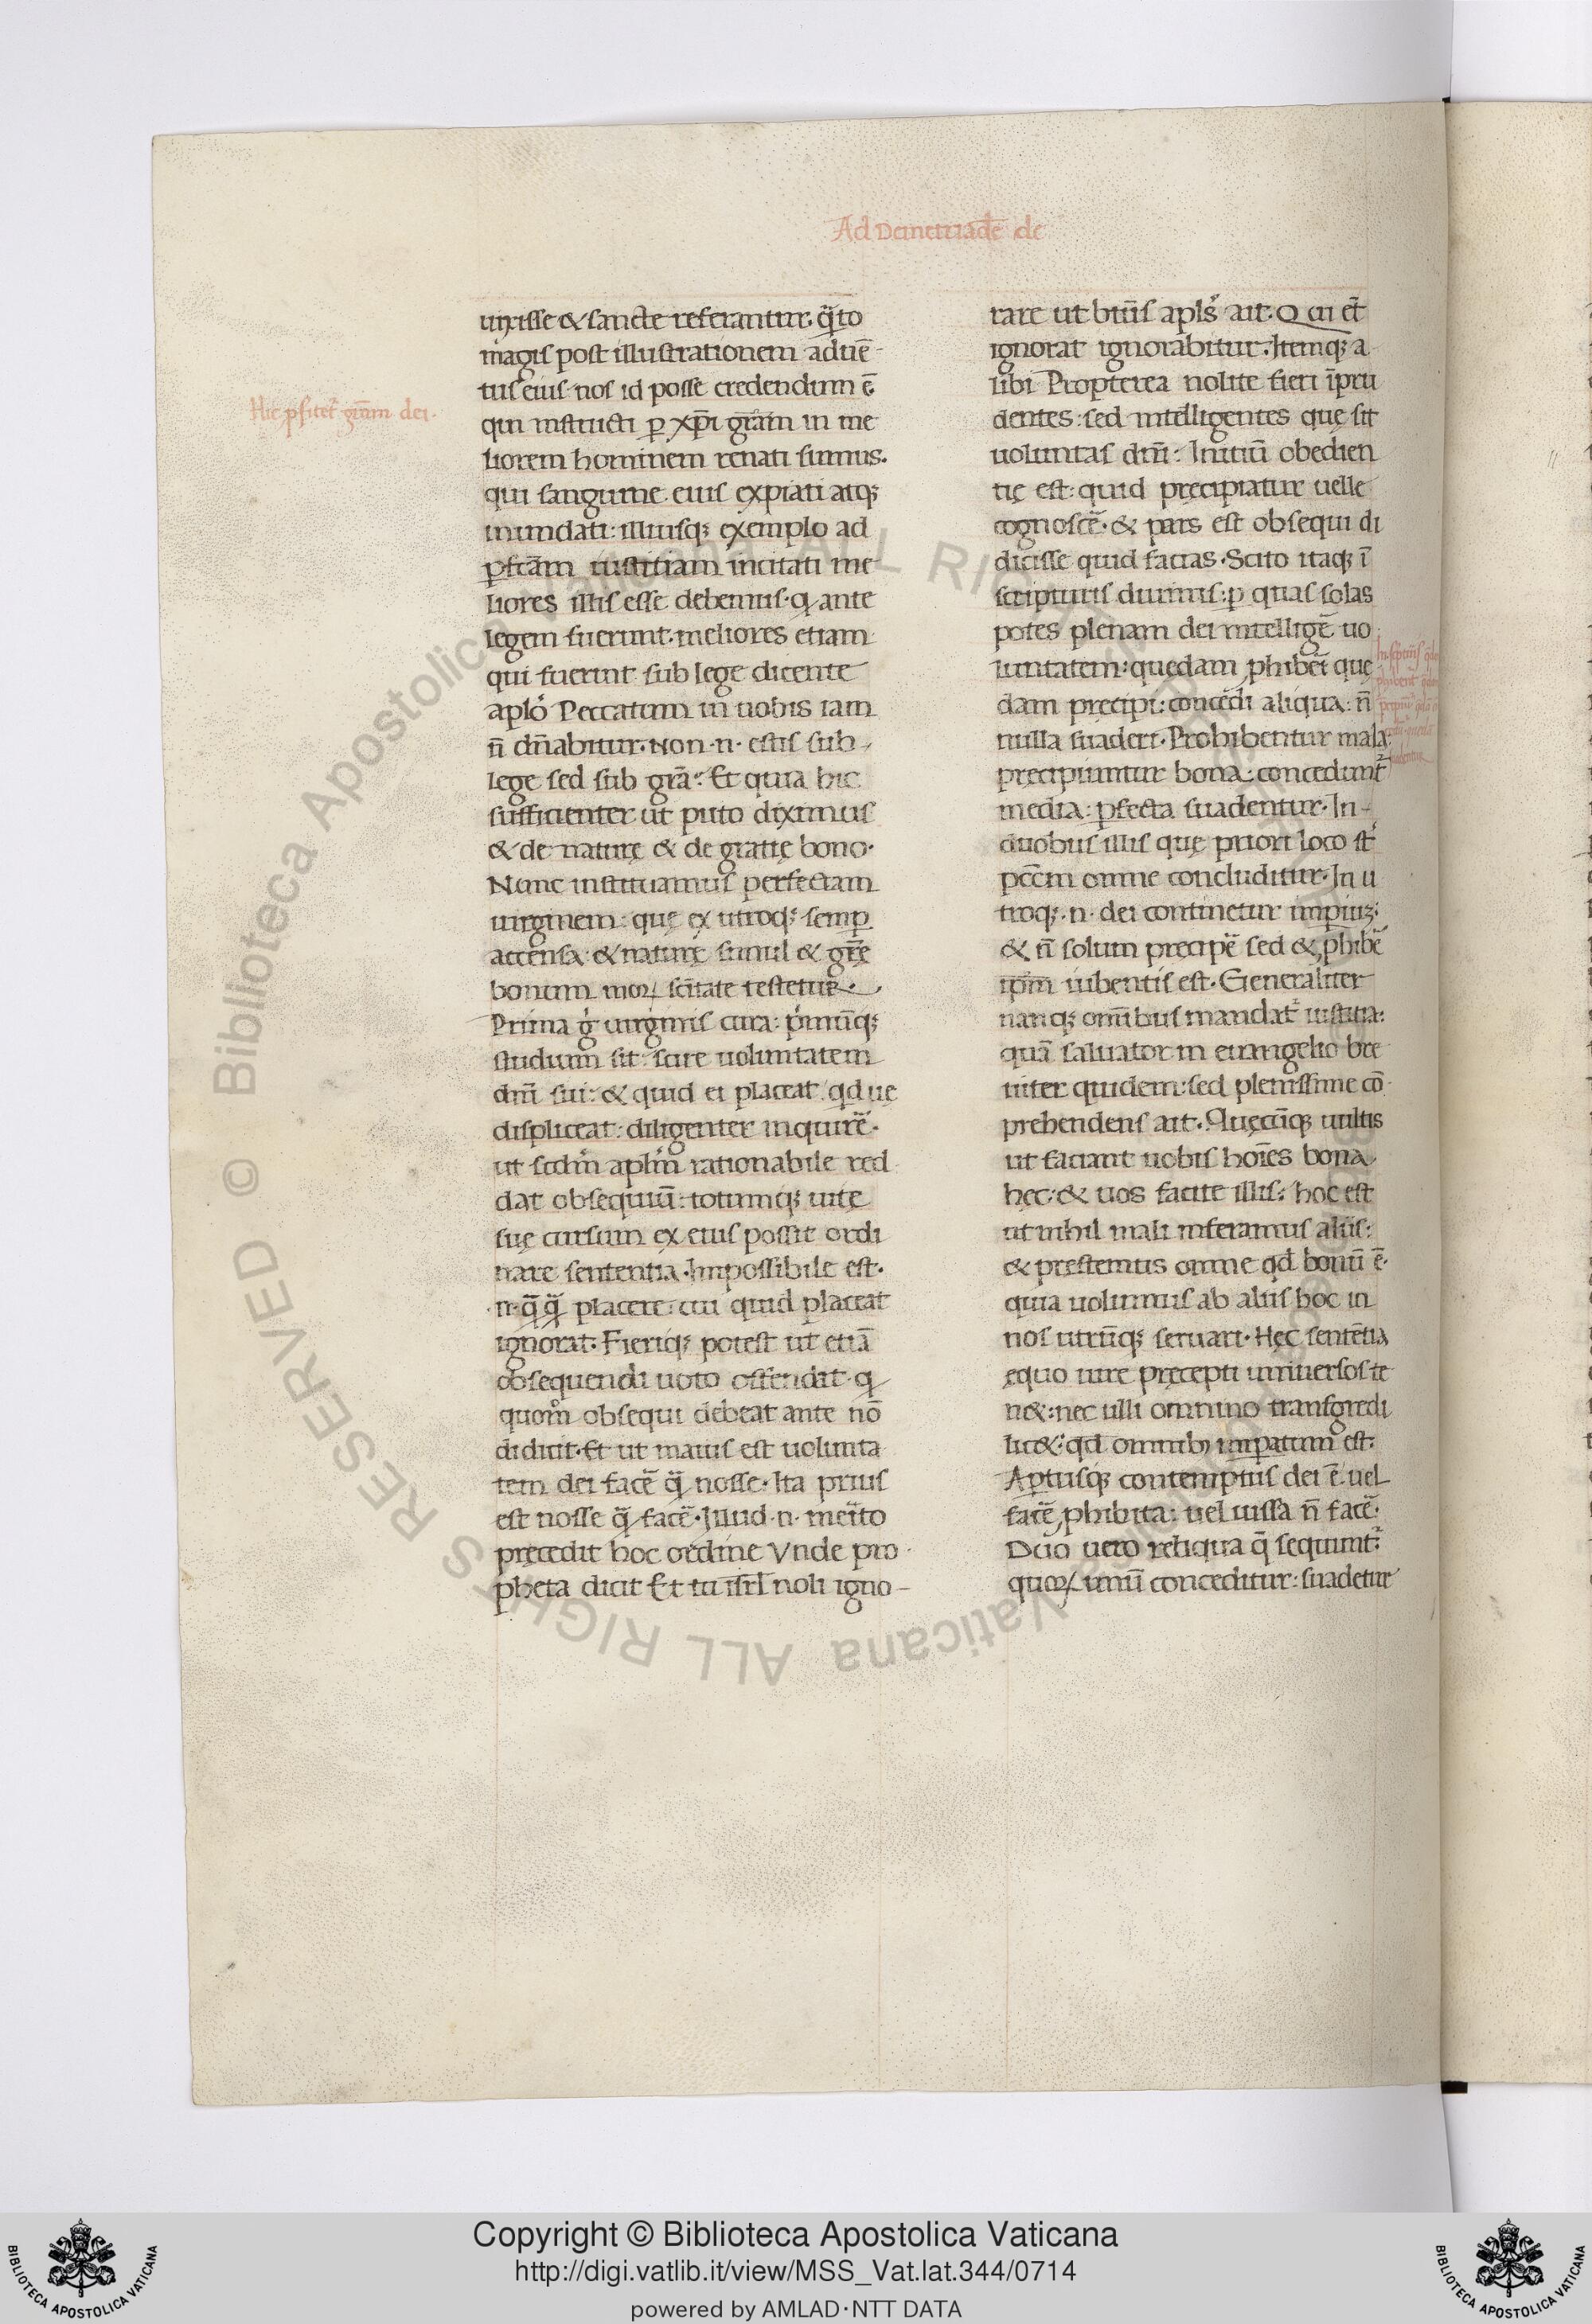 Ad Demetriadē de
uixisse & sancte referantur. q̃to
magis post illustrationem aduē
tus eius nos id posse credendum ē
Hic ꝓfitet᷑ grãm dei.
qui instructi ꝑ xp̄i grãm in me
liorem hominem renati sumus.
qui sanguine eius expiati atqꝫ
mundati: illiusqꝫ exemplo ad
ꝑfcãm iustitiam incitati me
liores illis esse debemus. q̇ ante
legem fuerunt. meliores etiam
qui fuerint sub lege dicente
aplo Peccatum in uobis iam
ñ dñabitur. Non .n. estis sub
lege sed sub grã. Et quia hic
sufficienter ut puto diximus
& de naturę & de gratię bono.
Nunc instituamus perfectam
uirginem: quę ex utroqꝫ semꝑ
accensa: & naturę simul & grē
bonum moꝝ sc̄itate testetur.
Prima g̊ uirginis cura: pͥmūqꝫ
studium sit: scire uoluntatem
dn̄i sui: & quid ei placeat qd ue
displiceat: diligenter inquirē.
ut scdm̄ aplm̄ rationabile red
dat obsequiū: totumqꝫ uite
suę cursum ex eius possit ordi
nare sententia. Impossibile est.
.n. q̄ q̃ placere: cui quid placeat
ignorat. Fieriqꝫ potest ut etiā
obsequendi uoto offendat. q̇
quom̊ obsequi debeat ante nō
didicit. Et ut maius est uolunta
tem dei facē q̃ nosse. Ita prius
est nosse q̃ facē. Illud .n. meīto
precedit hoc ordine Vnde pro
pheta dicit Et tu isrl̄ noli igno-
rare ut btūs apls̄ ait. Qui et̄
ignorat ignorabitur. Itemqꝫ a
libi Propterea nolite fieri īpru
dentes: sed intelligentes quę sit
uoluntas dn̄i: Initiū obedien
tię est: quid pręcipiatur uelle
cognoscē. & pars est obsequii di
dicisse quid facias. Scito itaqꝫ ī
scripturis diuinis: ꝑ quas solas
potes plenam dei intelligē uo
luntatem: quędam ꝓhibeī que
dam pręcipi: concedi aliqua: ñ
nulla suaderi. Prohibentur mala:
precipiuntur bona: conceduntᷣ
media: ꝑfecta suadentur. In-
duobus illis quę priori loco st̄
pcc̄m omne concluditur. In u
troqꝫ .n. dei continetur imꝑiuꝫ:
& ñ solum precipē sed & ꝓhibē
ip̄m iubentis est. Generaliter
nanqꝫ omībus mandatᷣ iustitia:
quā saluator in euangelio bre
uiter quidem: sed plenissime cō
prehendens ait. Quęcūqꝫ uultis
ut faciant uobis hoīes bona
hęc: & uos facite illis: hoc est
ut nihil mali inferamus aliis:
& prestemus omne qd bonū ē.
quia uolumus ab aliis hoc in
nos utrūqꝫ seruari. Hęc sentētia
ęquo iure pręcepti uniuersos te
n&: nec ulli omnino transgredi
lic&: qd omnibꝫ imꝑatum est.
Aꝑtusqꝫ contemptus dei ē. uel
facē ꝓhibita: uel iussa ñ facē.
Duo uero reliqua q̄ sequuntᷣ:
quoꝝ unū conceditur: suadetur
Copyright © Biblioteca Apostolica Vaticana
http://digi.vatlib.it/view/MSS_Vat.lat.344/0714
powered by AMLAD·NTT DATA
BIBLIOTECA APOSTOLICA VATICANA
BIBLIOTECA APOSTOLICA VATICANA
© Biblioteca Apostolica Vaticana ALL RIGHTS RESERVED